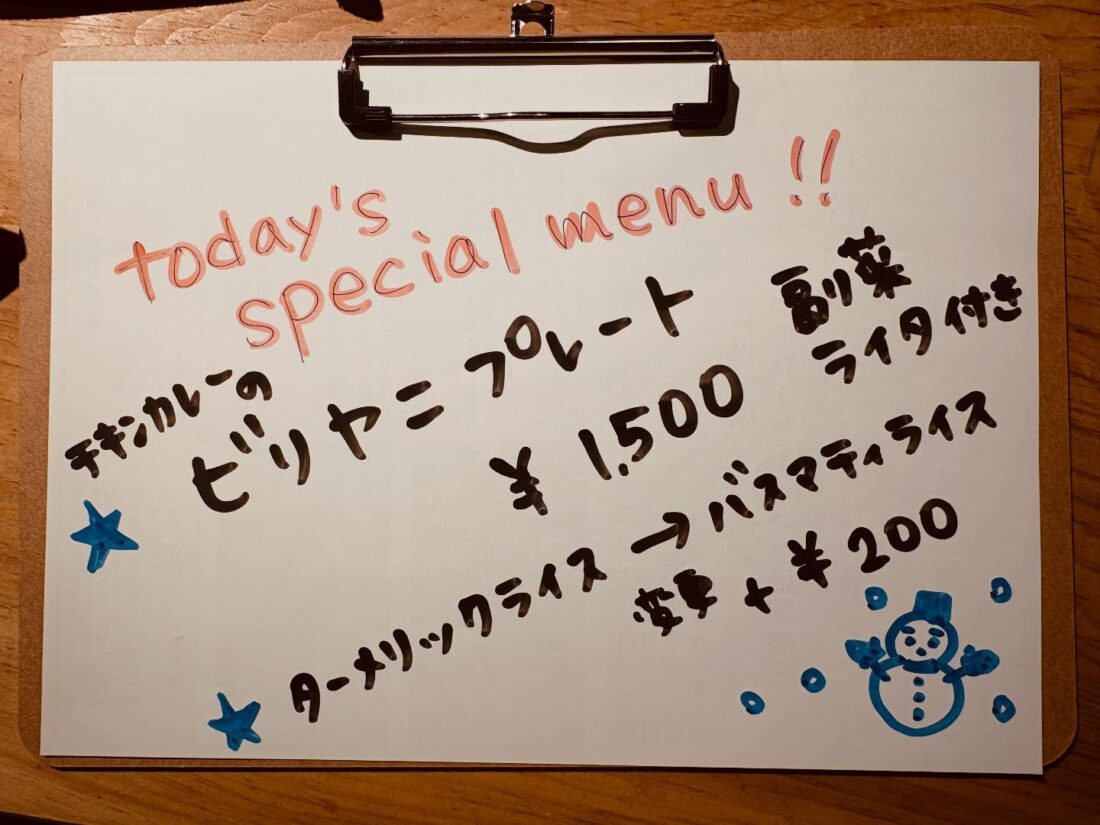 today's
special menu !!
チキンカレーの
ビリヤニプレート
副菜
ライタ付き
¥ 1.500
ターメリックライス → バスマティライス
変更 + ¥ 200